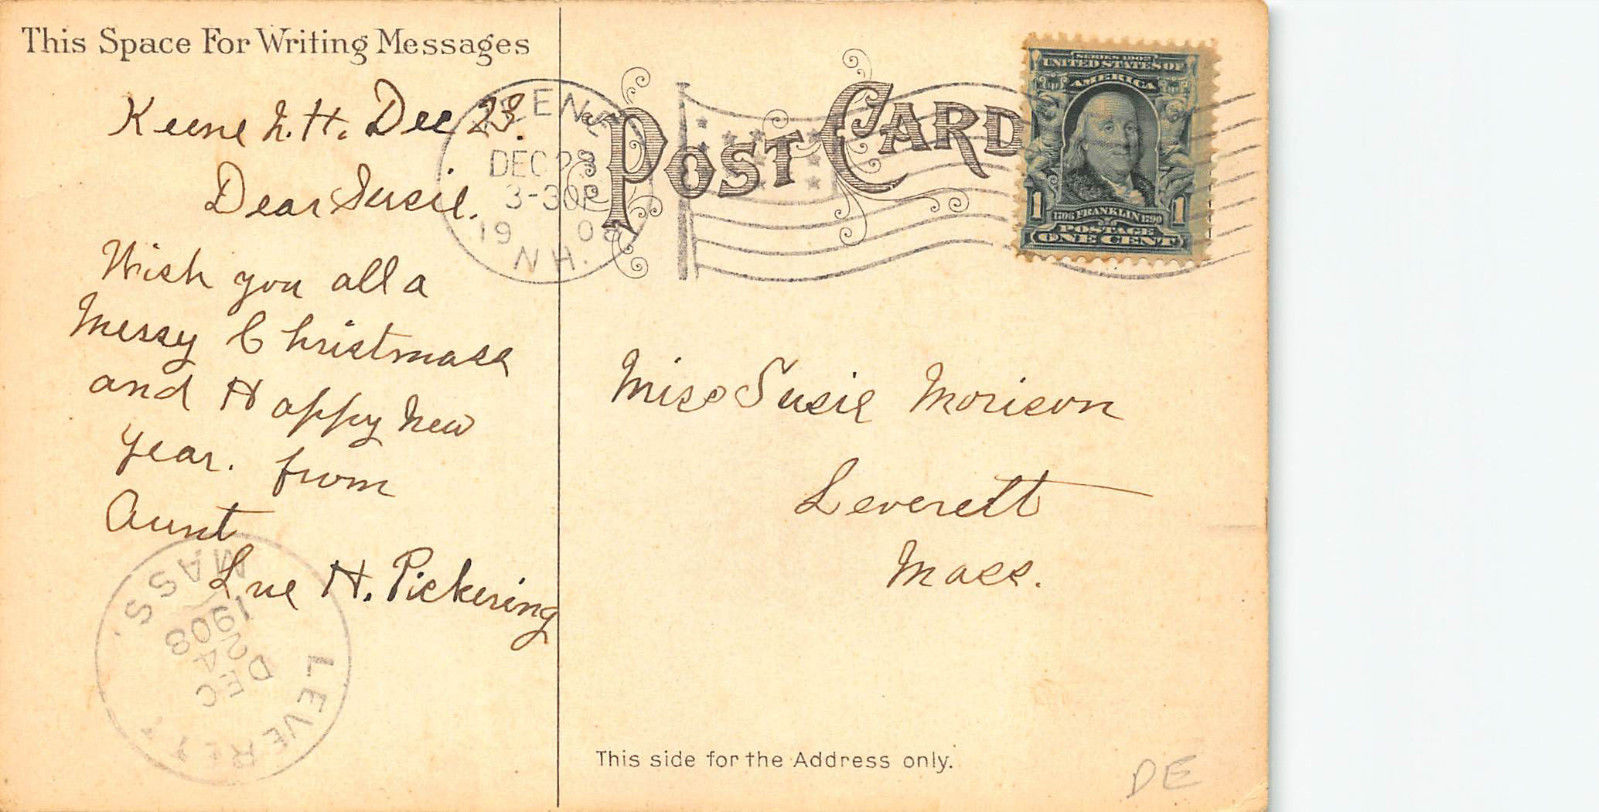 This Space For Writing Messages
Keene N.H. Dec 23.
Dear Susie.
Wish you all a
Merry Christmass
and Happy New
Year. from
Aunt
Lue H. Pickering
KEENE
DEC 23
3-30P
1908
N.H.
POST CARD
SERIES 1902
UNITED STATES OF
AMERICA
1 1706 FRANKLIN 1790 1
POSTAGE
ONE CENT
Miss Susie Morison
Leverett
Mass.
LEVERETT MASS.
DEC
24
1908
This side for the Address only.
DE